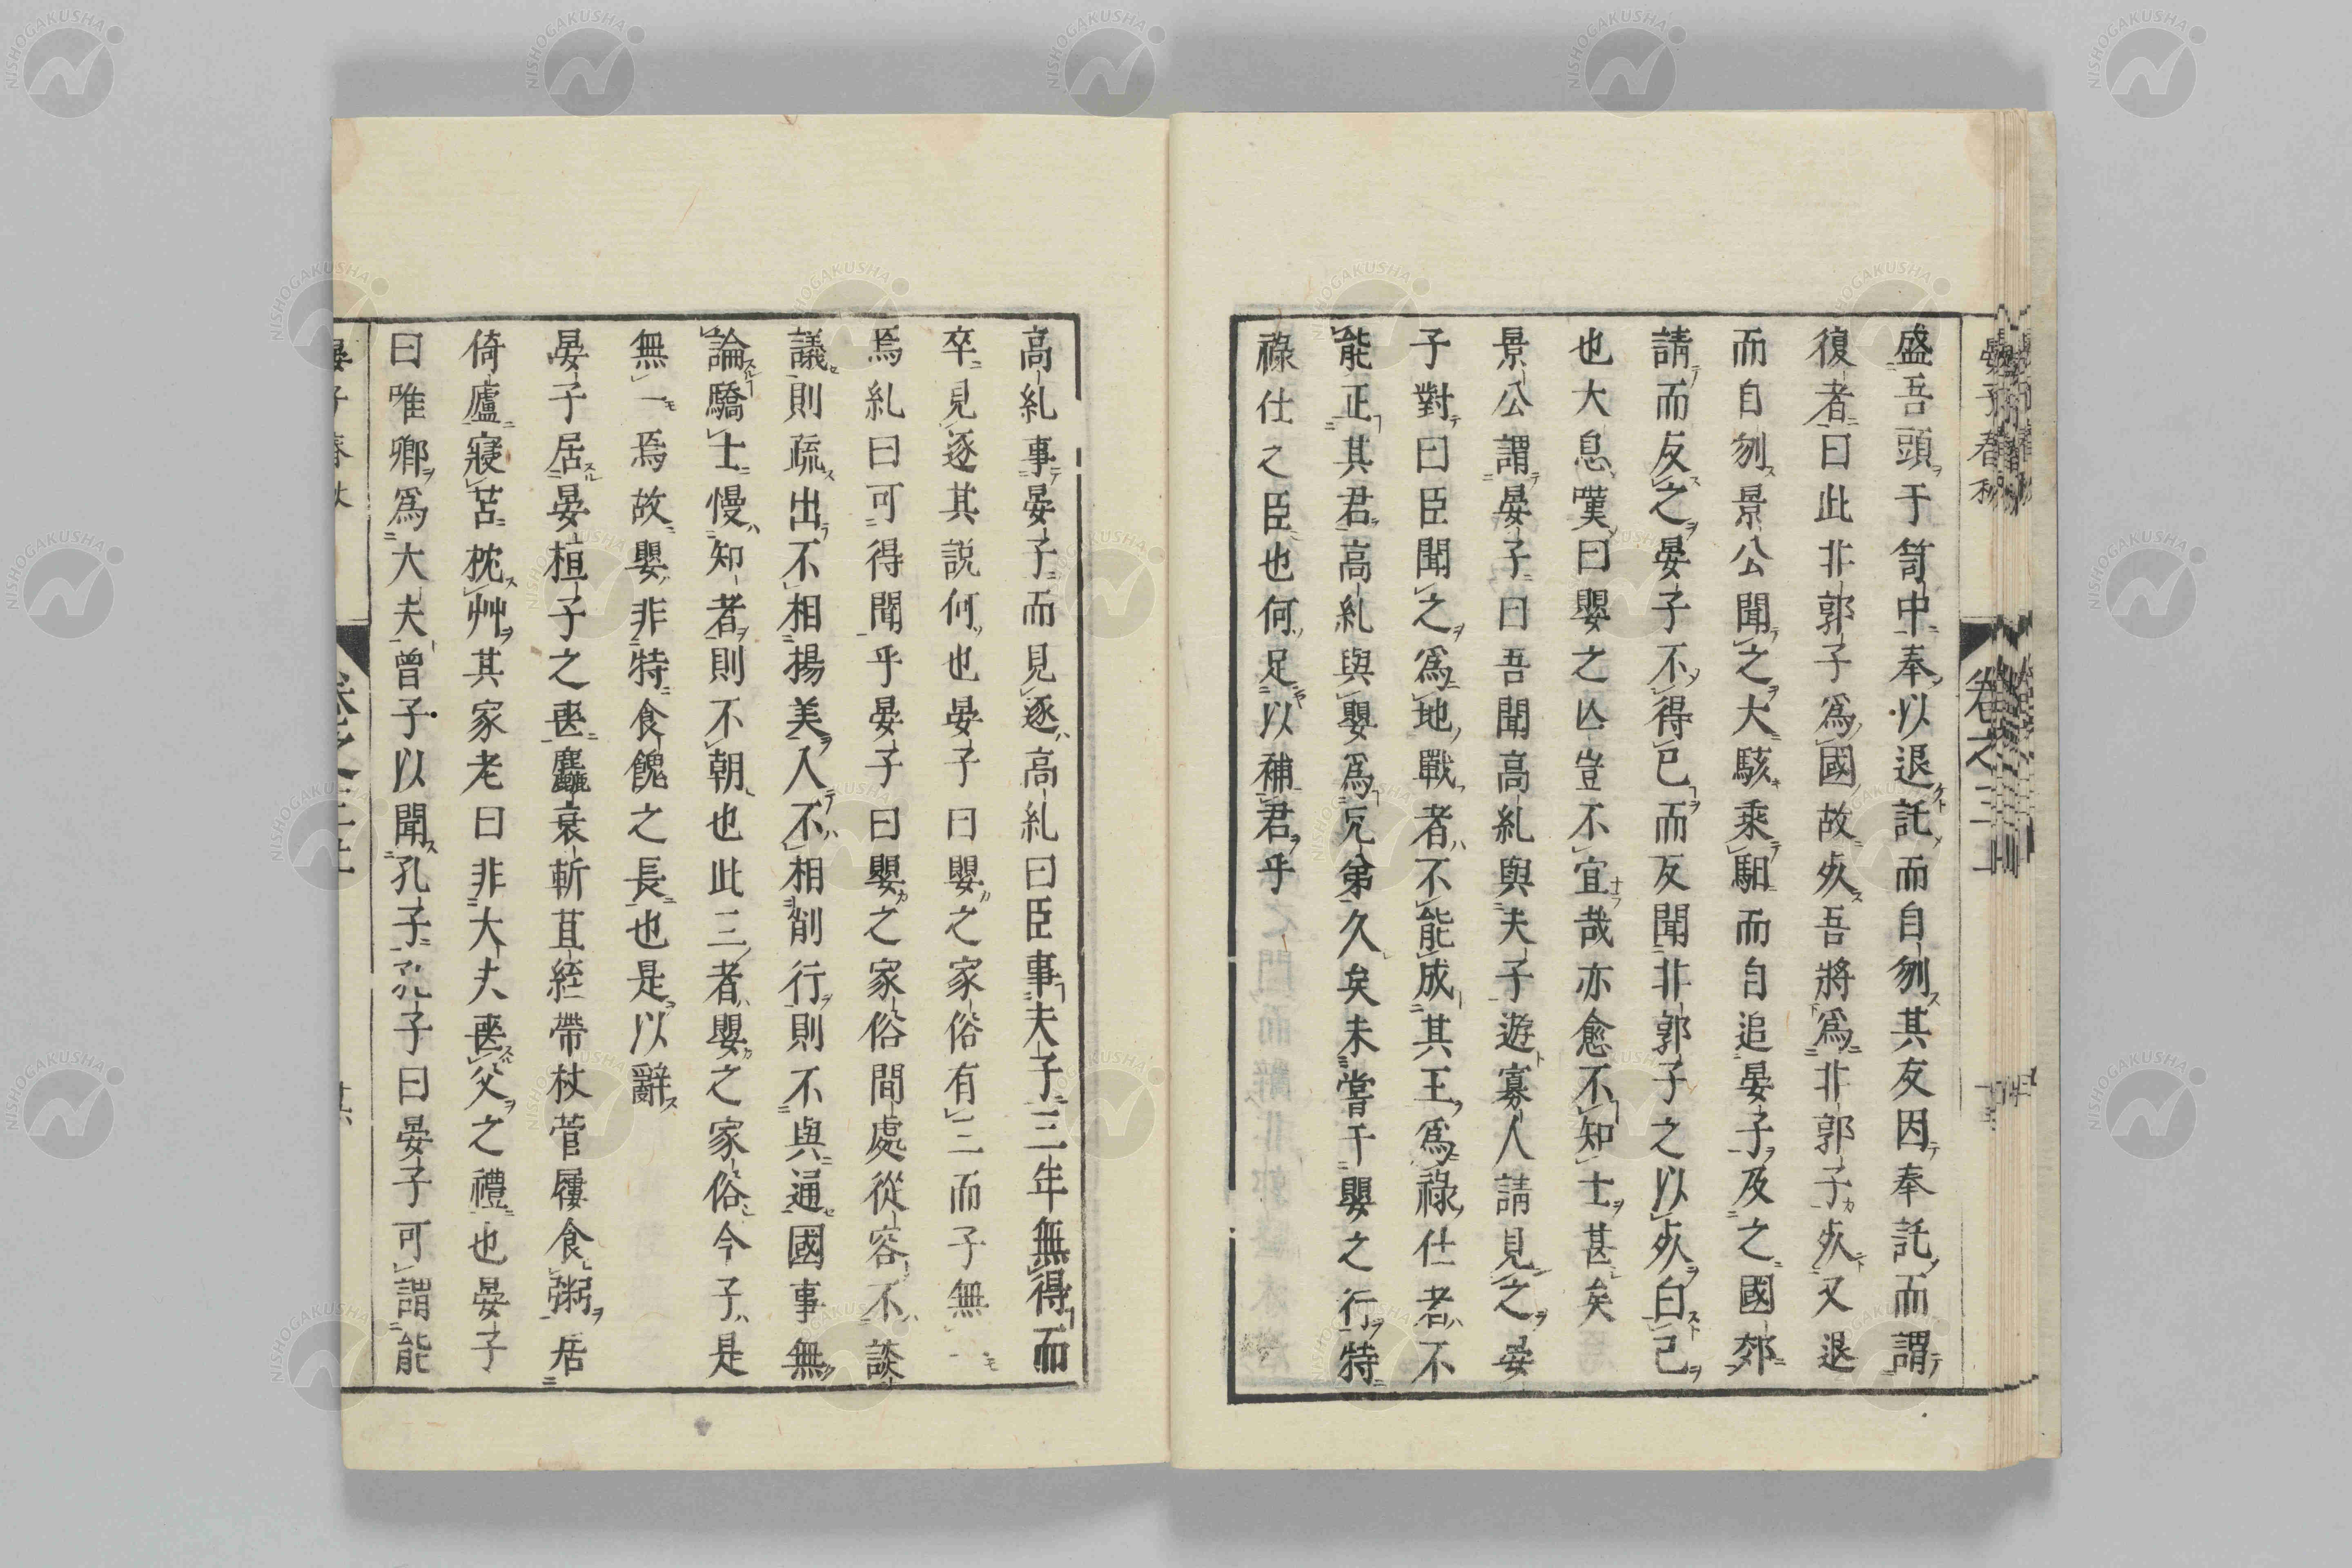 盛吾頭于笥中奉以退託而自刎其友因奉託而謂
復者曰此非郭子爲國故㱙吾將爲非郭子㱙又退
而自刎景公聞之大駭乘馹而自追晏子及之國郊
請而反之晏子不得已而反聞非郭子之以㱙白己
也大息嘆曰嬰之亾豈不宜哉亦愈不知士甚矣
景公謂晏子曰吾聞高糺與夫子遊寡人請見之晏
子對曰臣聞之爲地戰者不能成其王爲祿仕者不
能正其君高糺與嬰爲兄弟久矣未嘗干嬰之行特
祿仕之臣也何足以補君乎
高糺事晏子而見逐高糺曰臣事夫子三年無得而
卒見逐其説何也晏子曰嬰之家俗有三而子無一
焉糺曰可得聞乎晏子曰嬰之家俗間處從容不談
議則疏出不相揚美入不相削行則不與通國事無
論驕士慢知者則不朝也此三者嬰之家俗今子是
無一焉故嬰非特食餽之長也是以辭
晏子居晏桓子之喪麤衰斬苴絰帶杖菅屨食粥居
倚廬寢苫枕艸其家老曰非大夫喪父之禮也晏子
曰唯卿爲大夫曾子以聞孔子孔子曰晏子可謂能
晏子春秋
卷之三
NISHOGAKUSHA